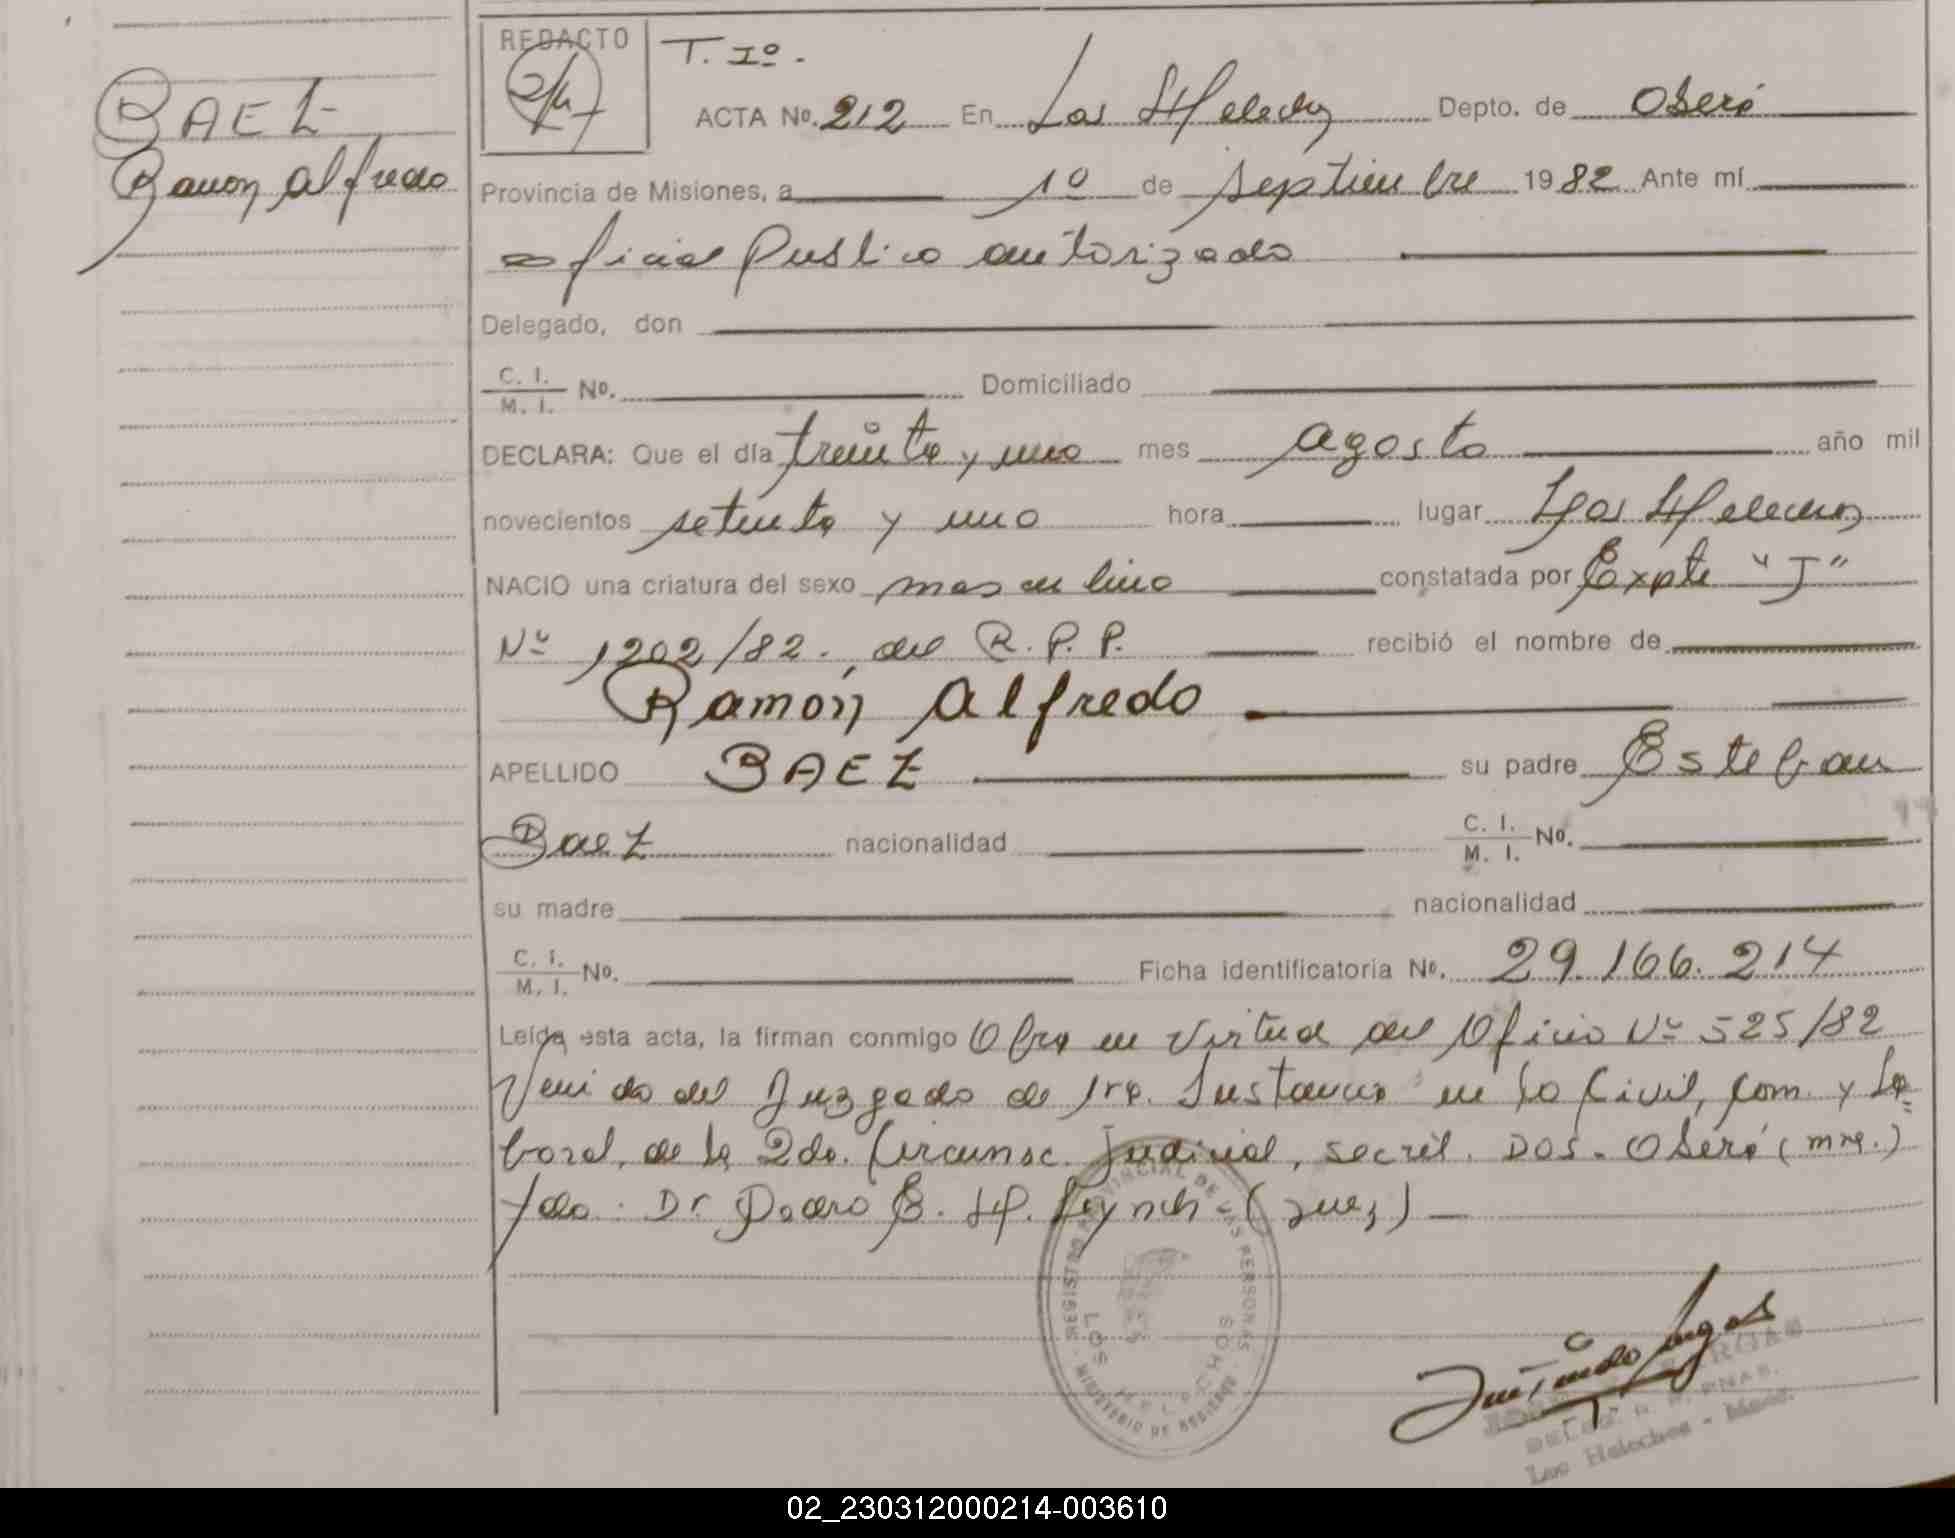 BAEZ
Ramon Alfredo
REDACTO
T. Iº.
ACTA Nº. 212 En Los Helechos Depto. de Oberá
Provincia de Misiones, a 1º de septiembre 1982 Ante mí
oficial Publico autorizado
Delegado, don
C. I. / M. I. Nº. Domiciliado
DECLARA: Que el día treinta y uno mes agosto año mil
novecientos setenta y uno hora lugar Los Helechos
NACIO una criatura del sexo masculino constatada por Expte "J"
Nº 1202/82. del R.P.P. recibió el nombre de
Ramón Alfredo
APELLIDO BAEZ su padre Esteban
Baez nacionalidad C. I. / M. I. Nº.
su madre nacionalidad
C. I. / M. I. Nº. Ficha identificatoria Nº. 29.166.214
Leída esta acta, la firman conmigo Obra en virtud del Oficio Nº 525/82
Venido del Juzgado de 1ra. Instancia en lo Civil, Com. y La=
boral, de la 2da. Circunsc. Judicial, secret. DOS. Oberá (mnes.)
fdo. Dr Pedro E. H. Lynch (Juez)
REGISTRO PROVINCIAL DE LAS PERSONAS
LOS HELECHOS
MINISTERIO DE GOBIERNO
Los Helechos - Mnes.
02_230312000214-003610